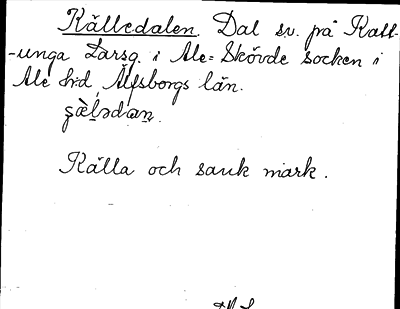 Källedalen. Dal sv. på Kall-
-unga Larsg. i Ale-Skövde socken i
Ale hd, Älfsborgs län.
Källa och sank mark.